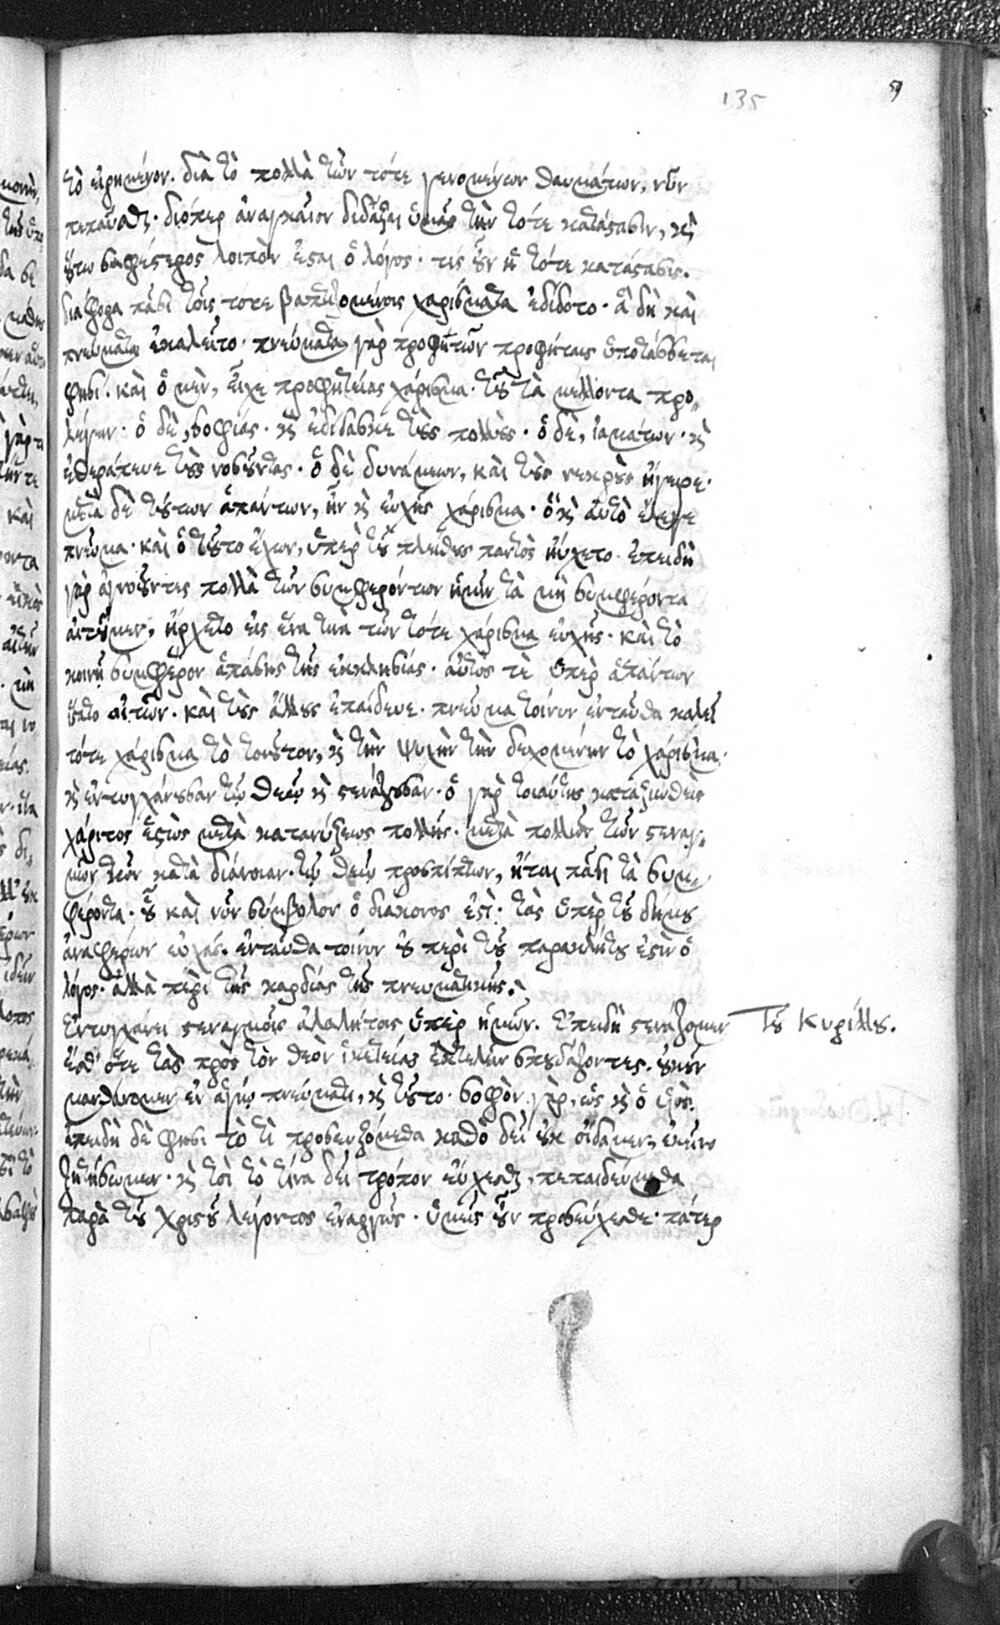 135
59
τὸ εἰρημένον. διὰ τὸ πολλὰ τῶν τότε γενομένων θαυμάτων, νῦν
πεπαῦσθαι· διόπερ ἀναγκαῖον διδάξαι ὑμᾶς τὴν τότε κατάστασιν, καὶ
οὕτω σαφέστερος λοιπὸν ἔσται ὁ λόγος· τίς οὖν ἡ τότε κατάστασις.
διάφορα πᾶσι τοῖς τότε βαπτιζομένοις χαρίσματα ἐδίδοτο· ἃ δὴ καὶ
πνεύματα ἐκαλεῖτο· πνεύματα γὰρ προφητῶν προφήταις ὑποτάσσεται
φησί. καὶ ὁ μὲν, εἶχε προφητείας χάρισμα· τοῦ τὰ μέλλοντα προ
λέγειν· ὁ δὲ, σοφίας· καὶ ἐδίδασκε τοὺς πολλούς· ὁ δὲ, ἰαμάτων· καὶ
ἐθεράπευε τοὺς νοσοῦντας· ὁ δὲ δυνάμεων, καὶ τοὺς νεκροὺς ἤγειρε·
μετὰ δὲ τούτων ἁπάντων, ἦν καὶ εὐχῆς χάρισμα· ὃ καὶ αὐτὸ ἐλέγετο
πνεῦμα· καὶ ὁ τοῦτο ἔχων, ὑπὲρ τοῦ πλήθους παντὸς ηὔχετο· ἐπειδὴ
γὰρ ἀγνοοῦντες πολλὰ τῶν συμφερόντων ἡμῖν τὰ μὴ συμφέροντα
αἰτοῦμεν, ἤρχετο εἰς ἕνα τινὰ τῶν τότε χάρισμα εὐχῆς· καὶ τὸ
κοινῇ συμφέρον ἁπάσης τῆς ἐκκλησίας· αὐτός τε ὑπὲρ ἁπάντων
ἵστατο αἰτῶν· καὶ τοὺς ἄλλους ἐπαίδευε· πνεῦμα τοίνυν ἐνταῦθα καλεῖ
τότε χάρισμα τὸ τοιοῦτον, καὶ τὴν ψυχὴν τὴν δεχομένην τὸ χάρισμα·
καὶ ἐντυγχάνουσαν τῷ θεῷ καὶ στενάζουσαν· ὁ γὰρ τοιαύτης καταξιωθεὶς
χάριτος ἑστὼς μετὰ κατανύξεως πολλῆς· μετὰ πολλῶν τῶν στεναγ
μῶν τῶν κατὰ διάνοιαν τῷ θεῷ προσπίπτων, ᾔτει πᾶσι τὰ συμ
φέροντα· οὗ καὶ νῦν σύμβολον ὁ διάκονος ἐστί· τὰς ὑπὲρ τοῦ δήμου
ἀναφέρων εὐχάς. ἐνταῦθα τοίνυν οὐ περὶ τοῦ παρακλήτου ἐστὶν ὁ
λόγος· ἀλλὰ περὶ τῆς καρδίας τῆς πνευματικῆς.
Ἐντυγχάνει στεναγμοῖς ἀλαλήτοις ὑπὲρ ἡμῶν. Ἐπειδὴ στενάζομεν Τοῦ Κυρίλλου.
ἔσθ' ὅτε τὰς πρὸς τὸν θεὸν ἱκετείας ἐκτελεῖν σπουδάζοντες.
μανθάνομεν ἐν ἁγίῳ πνεύματι, καὶ τοῦτο· σοφὸν γὰρ, ὡς καὶ ὁ
ἐπειδὴ δὲ φησὶ τὸ τί προσευξόμεθα καθὸ δεῖ οὐκ οἴδαμεν, ἐκεῖνο
ζητήσωμεν· καὶ τοι τὸ τίνα δεῖ τρόπον εὔχεσθαι, πεπαιδεύμεθα
παρὰ τοῦ χριστοῦ λέγοντος ἐναργῶς· ὑμεῖς οὖν προσεύχεσθε· πάτερ